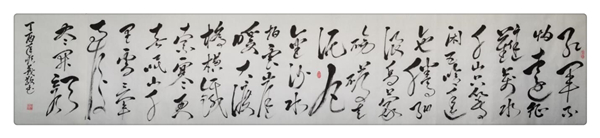 红军不
怕远征
难万水
千山只等
闲五岭逶
迤腾细
浪乌蒙
磅礴走
泥丸
金沙水
拍云崖
暖大渡
桥横铁
索寒更
喜岷山千
里雪三军
过后
尽开颜
丁酉年